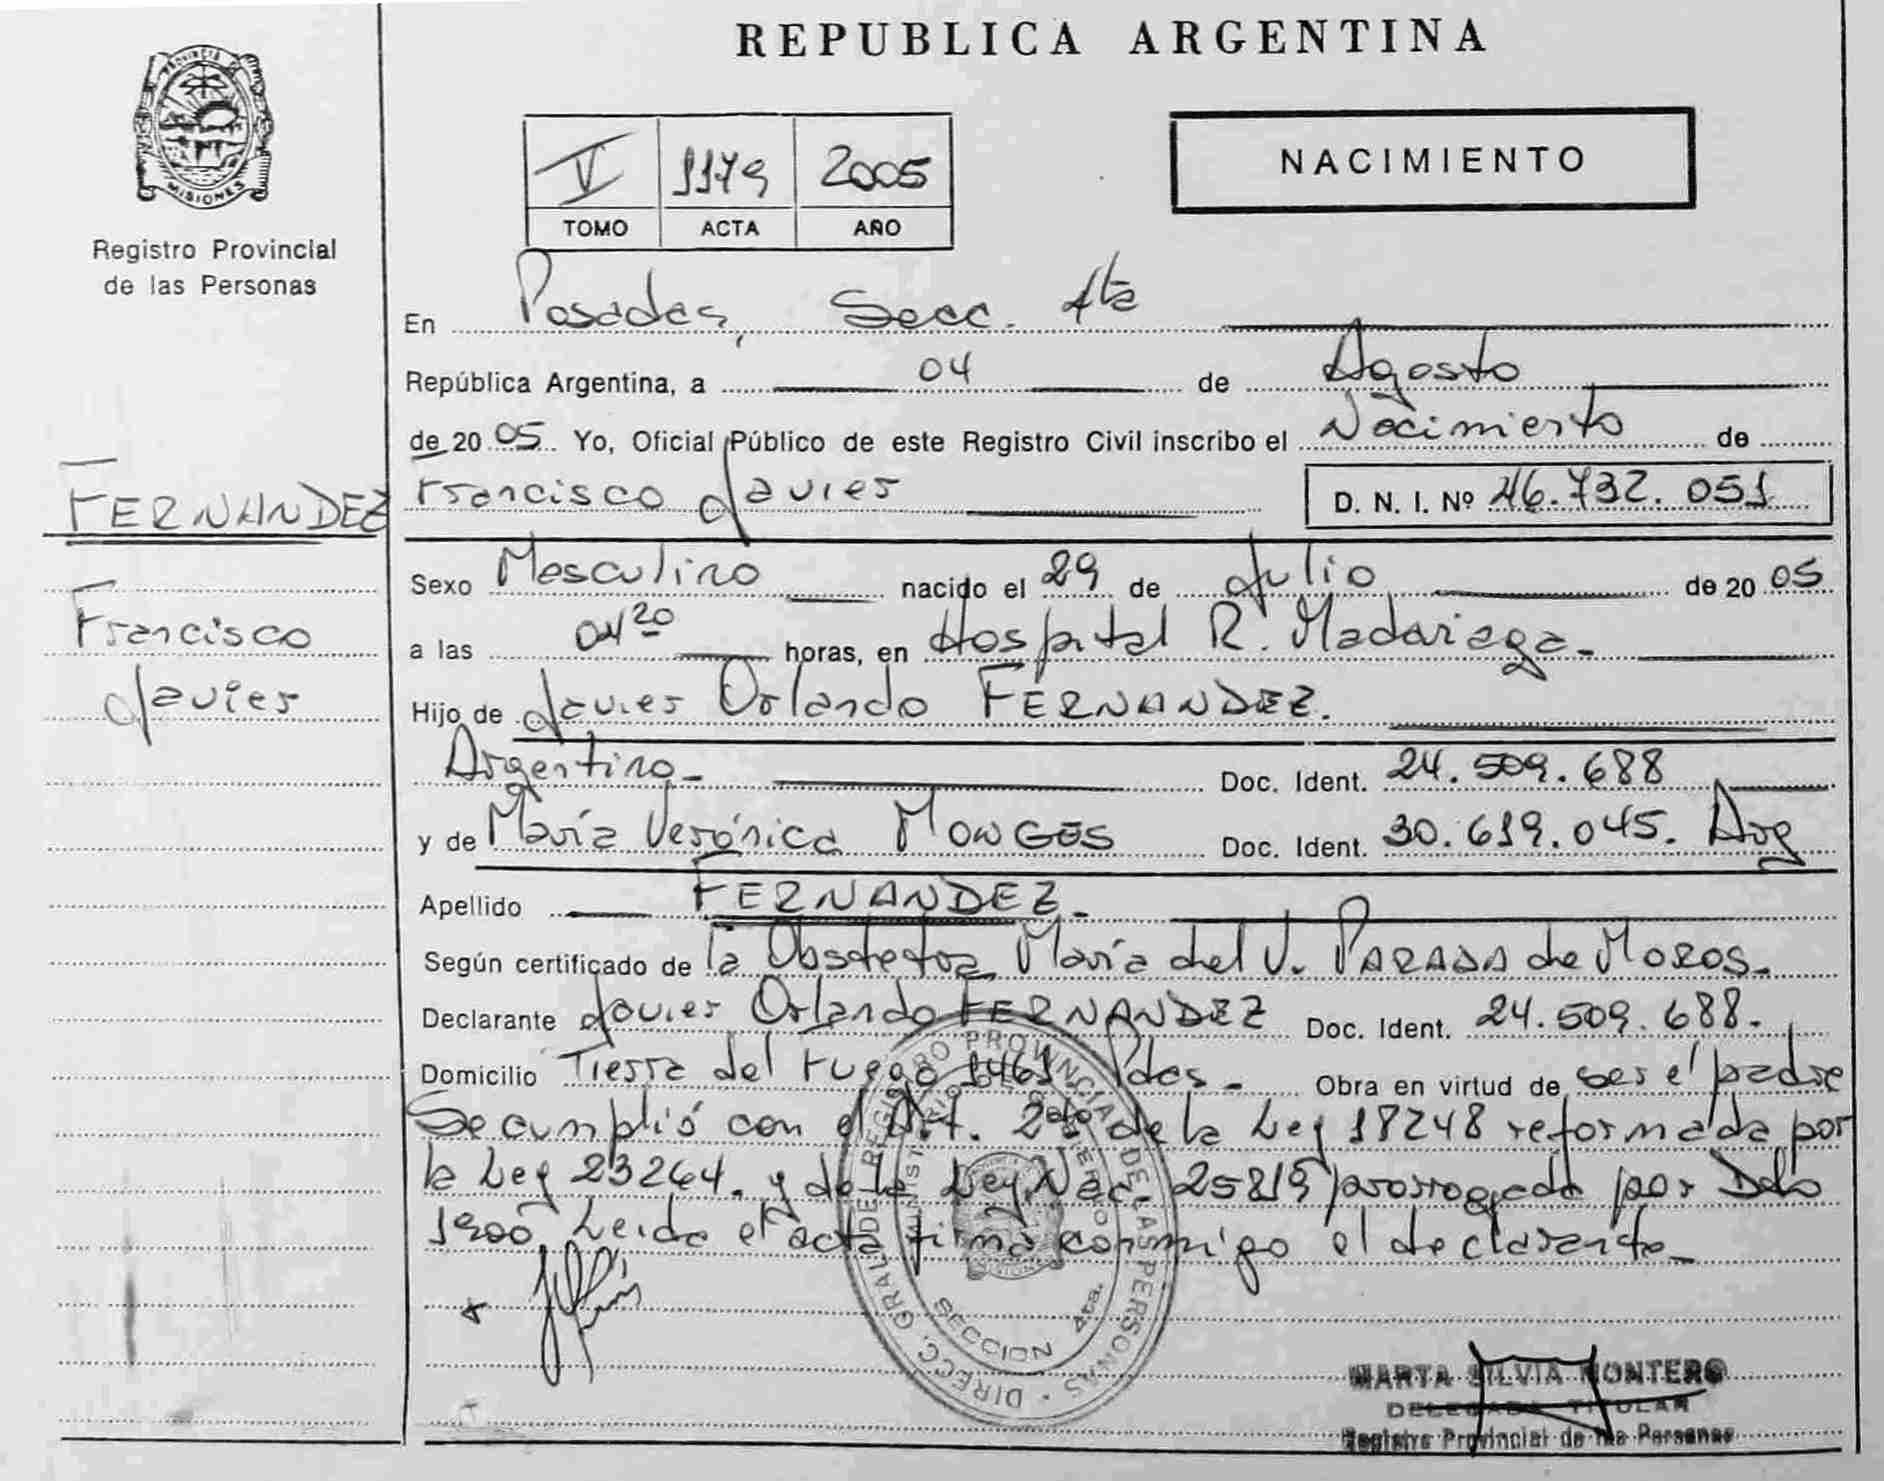 REPUBLICA ARGENTINA
PROVINCIA DE
MISIONES
Registro Provincial
de las Personas
V 1179 2005
TOMO ACTA AÑO
NACIMIENTO
En Posadas, Secc. 4ta
República Argentina, a 04 de Agosto
de 2005 Yo, Oficial Público de este Registro Civil inscribo el Nacimiento de
Francisco Javier D. N. I. Nº 46.732.051
FERNANDEZ
Francisco
Javier
Sexo Masculino nacido el 29 de Julio de 2005
a las 04 20 horas, en Hospital R. Madariaga.
Hijo de Javier Orlando FERNANDEZ.
Argentino Doc. Ident. 24.509.688
y de María Verónica MONGES Doc. Ident. 30.619.045. Arg
Apellido FERNANDEZ.
Según certificado de la Obstetra María del V. PARADA de MOROS.
Declarante Javier Orlando FERNANDEZ Doc. Ident. 24.509.688.
Domicilio Tierra del Fuego 1461 Pdas. Obra en virtud de ser el padre
Se cumplió con el Art. 2do de la Ley 18248 reformada por
la Ley 23264. y de la Ley Nac. 25819 prorrogada por Dto
1900 Leida el acta firma conmigo el declarante
DIRECC. GRAL. DE REGISTRO PROVINCIAL DE LAS PERSONAS
SECCION 4ta.
MISIONES
MARTA SILVIA MONTERO
DELEGADA TITULAR
Registro Provincial de las Personas